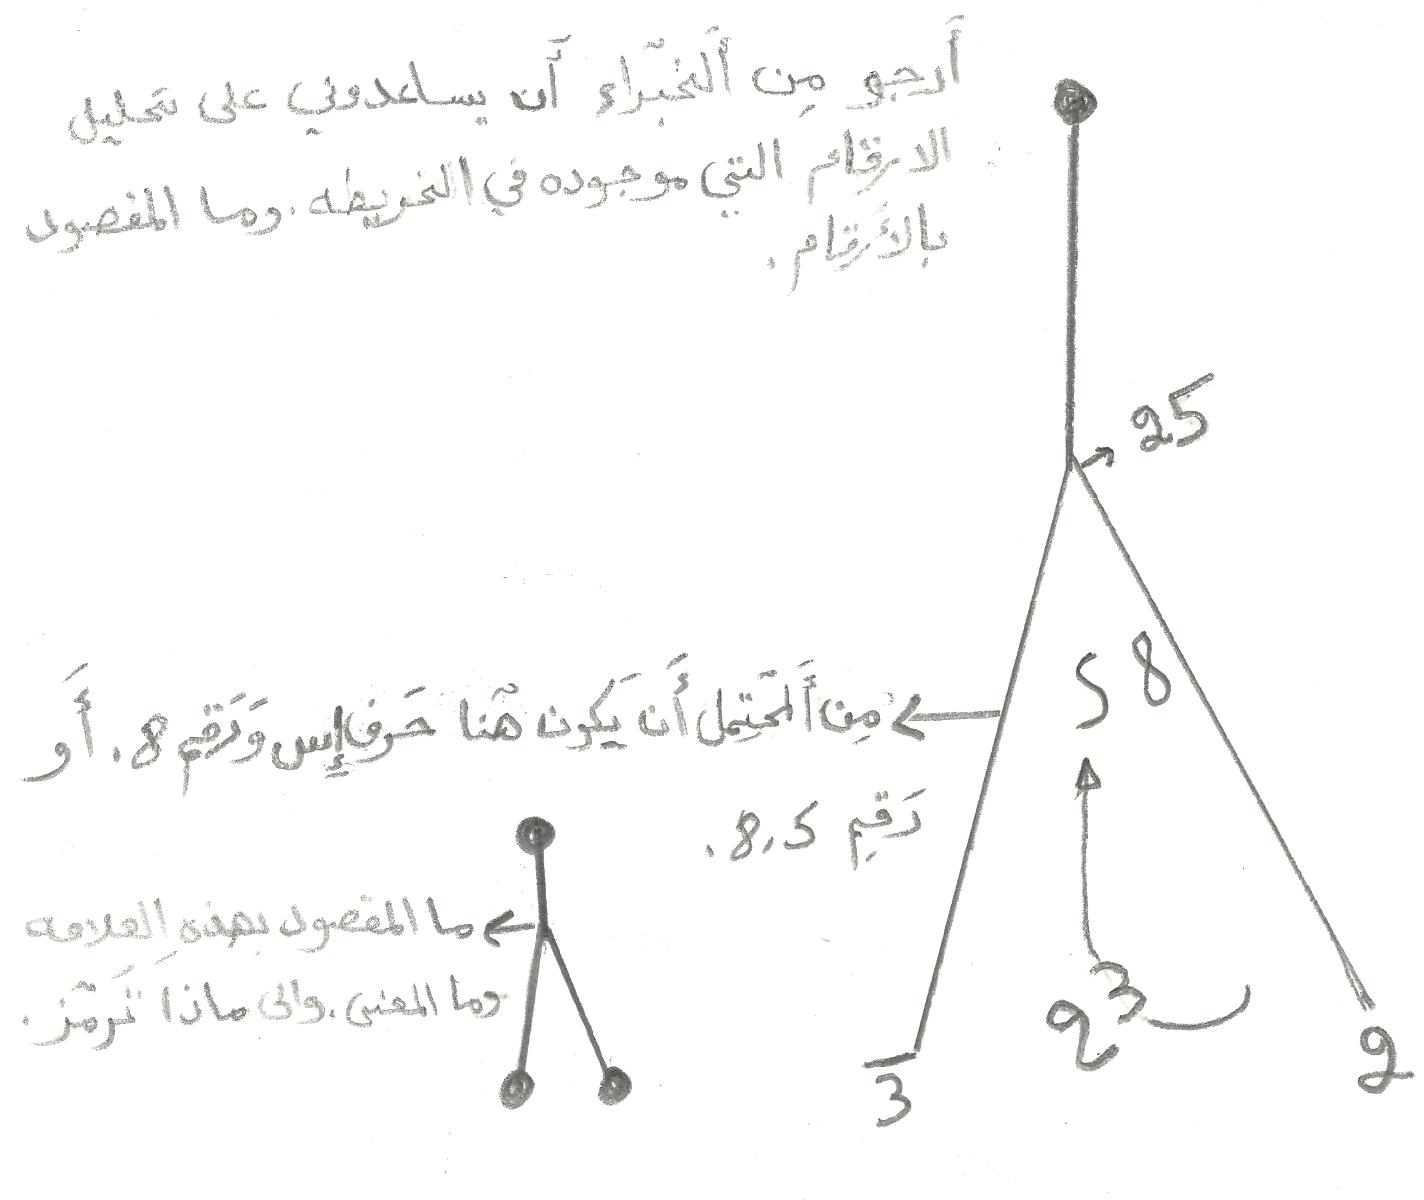 أَرجو مِن ٱَلخبّراء أَن يساعدوني على تحليل
الارقام التي موجوده في الخريطه . وما المقصود
بالأَرقام .
25
S 8
مِن ٱَلمحّتمل أَن يَكون هّنا حَرف إِس وَرَقم 8 . أَو
رَقمِ 8,5 .
ما المقصود بهذهِ العلامه
وما المعنى . والى ماذا تَرمّز .
23
2
3